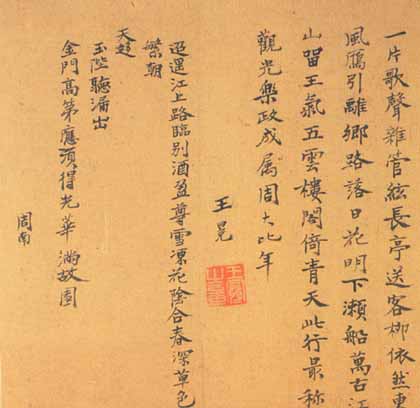 一片歌聲雜管絃長亭送客柳依然東
風鴈引離鄉路落日花明下瀨船萬古江
山留王氣五雲樓閣倚青天此行最称
觀光樂政成属周大比年
王冕
迢遞江上路臨別酒盈尊雪凍花陰合春深草色
繁朝
天趨
玉陛聽漏出
金門高第應須得光華滿故園
周南